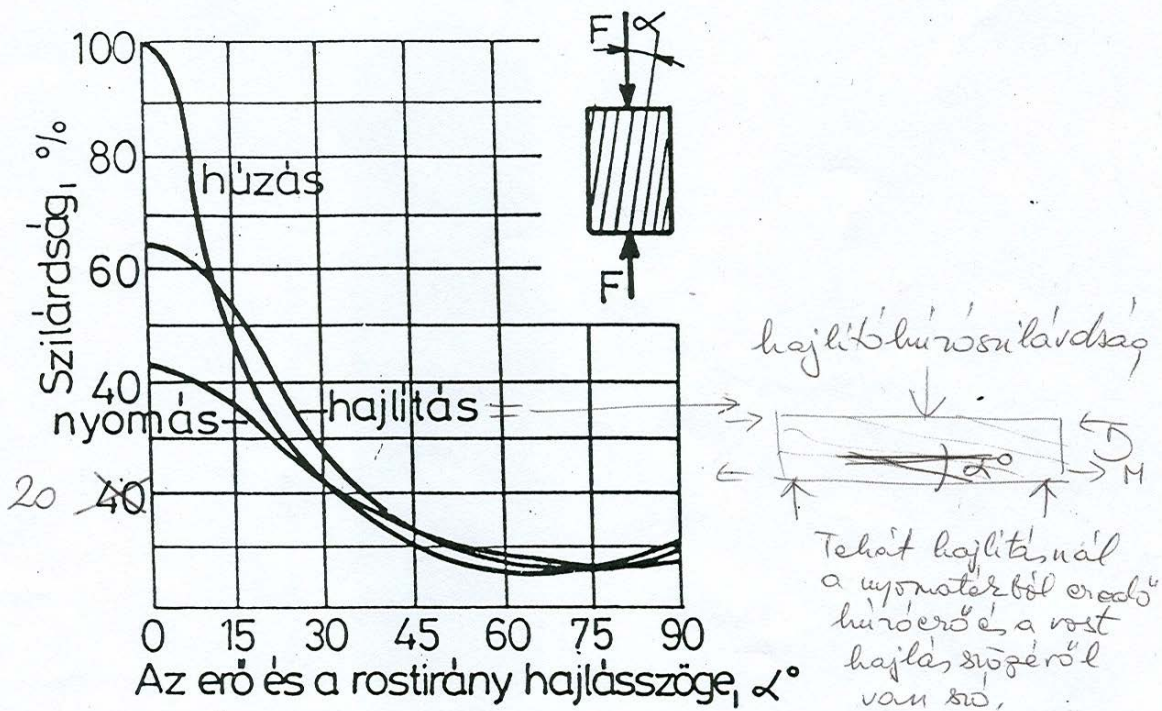 Szilárdság, %
100
80
60
40
20 40
húzás
nyomás
hajlítás
0 15 30 45 60 75 90
Az erő és a rostirány hajlásszöge, α°
F α
F
hajlítóhúzószilárdság
α°
M
Tehát hajlításnál
a nyomatékból eredő
húzóerő és a rost
hajlásszögéről
van szó,